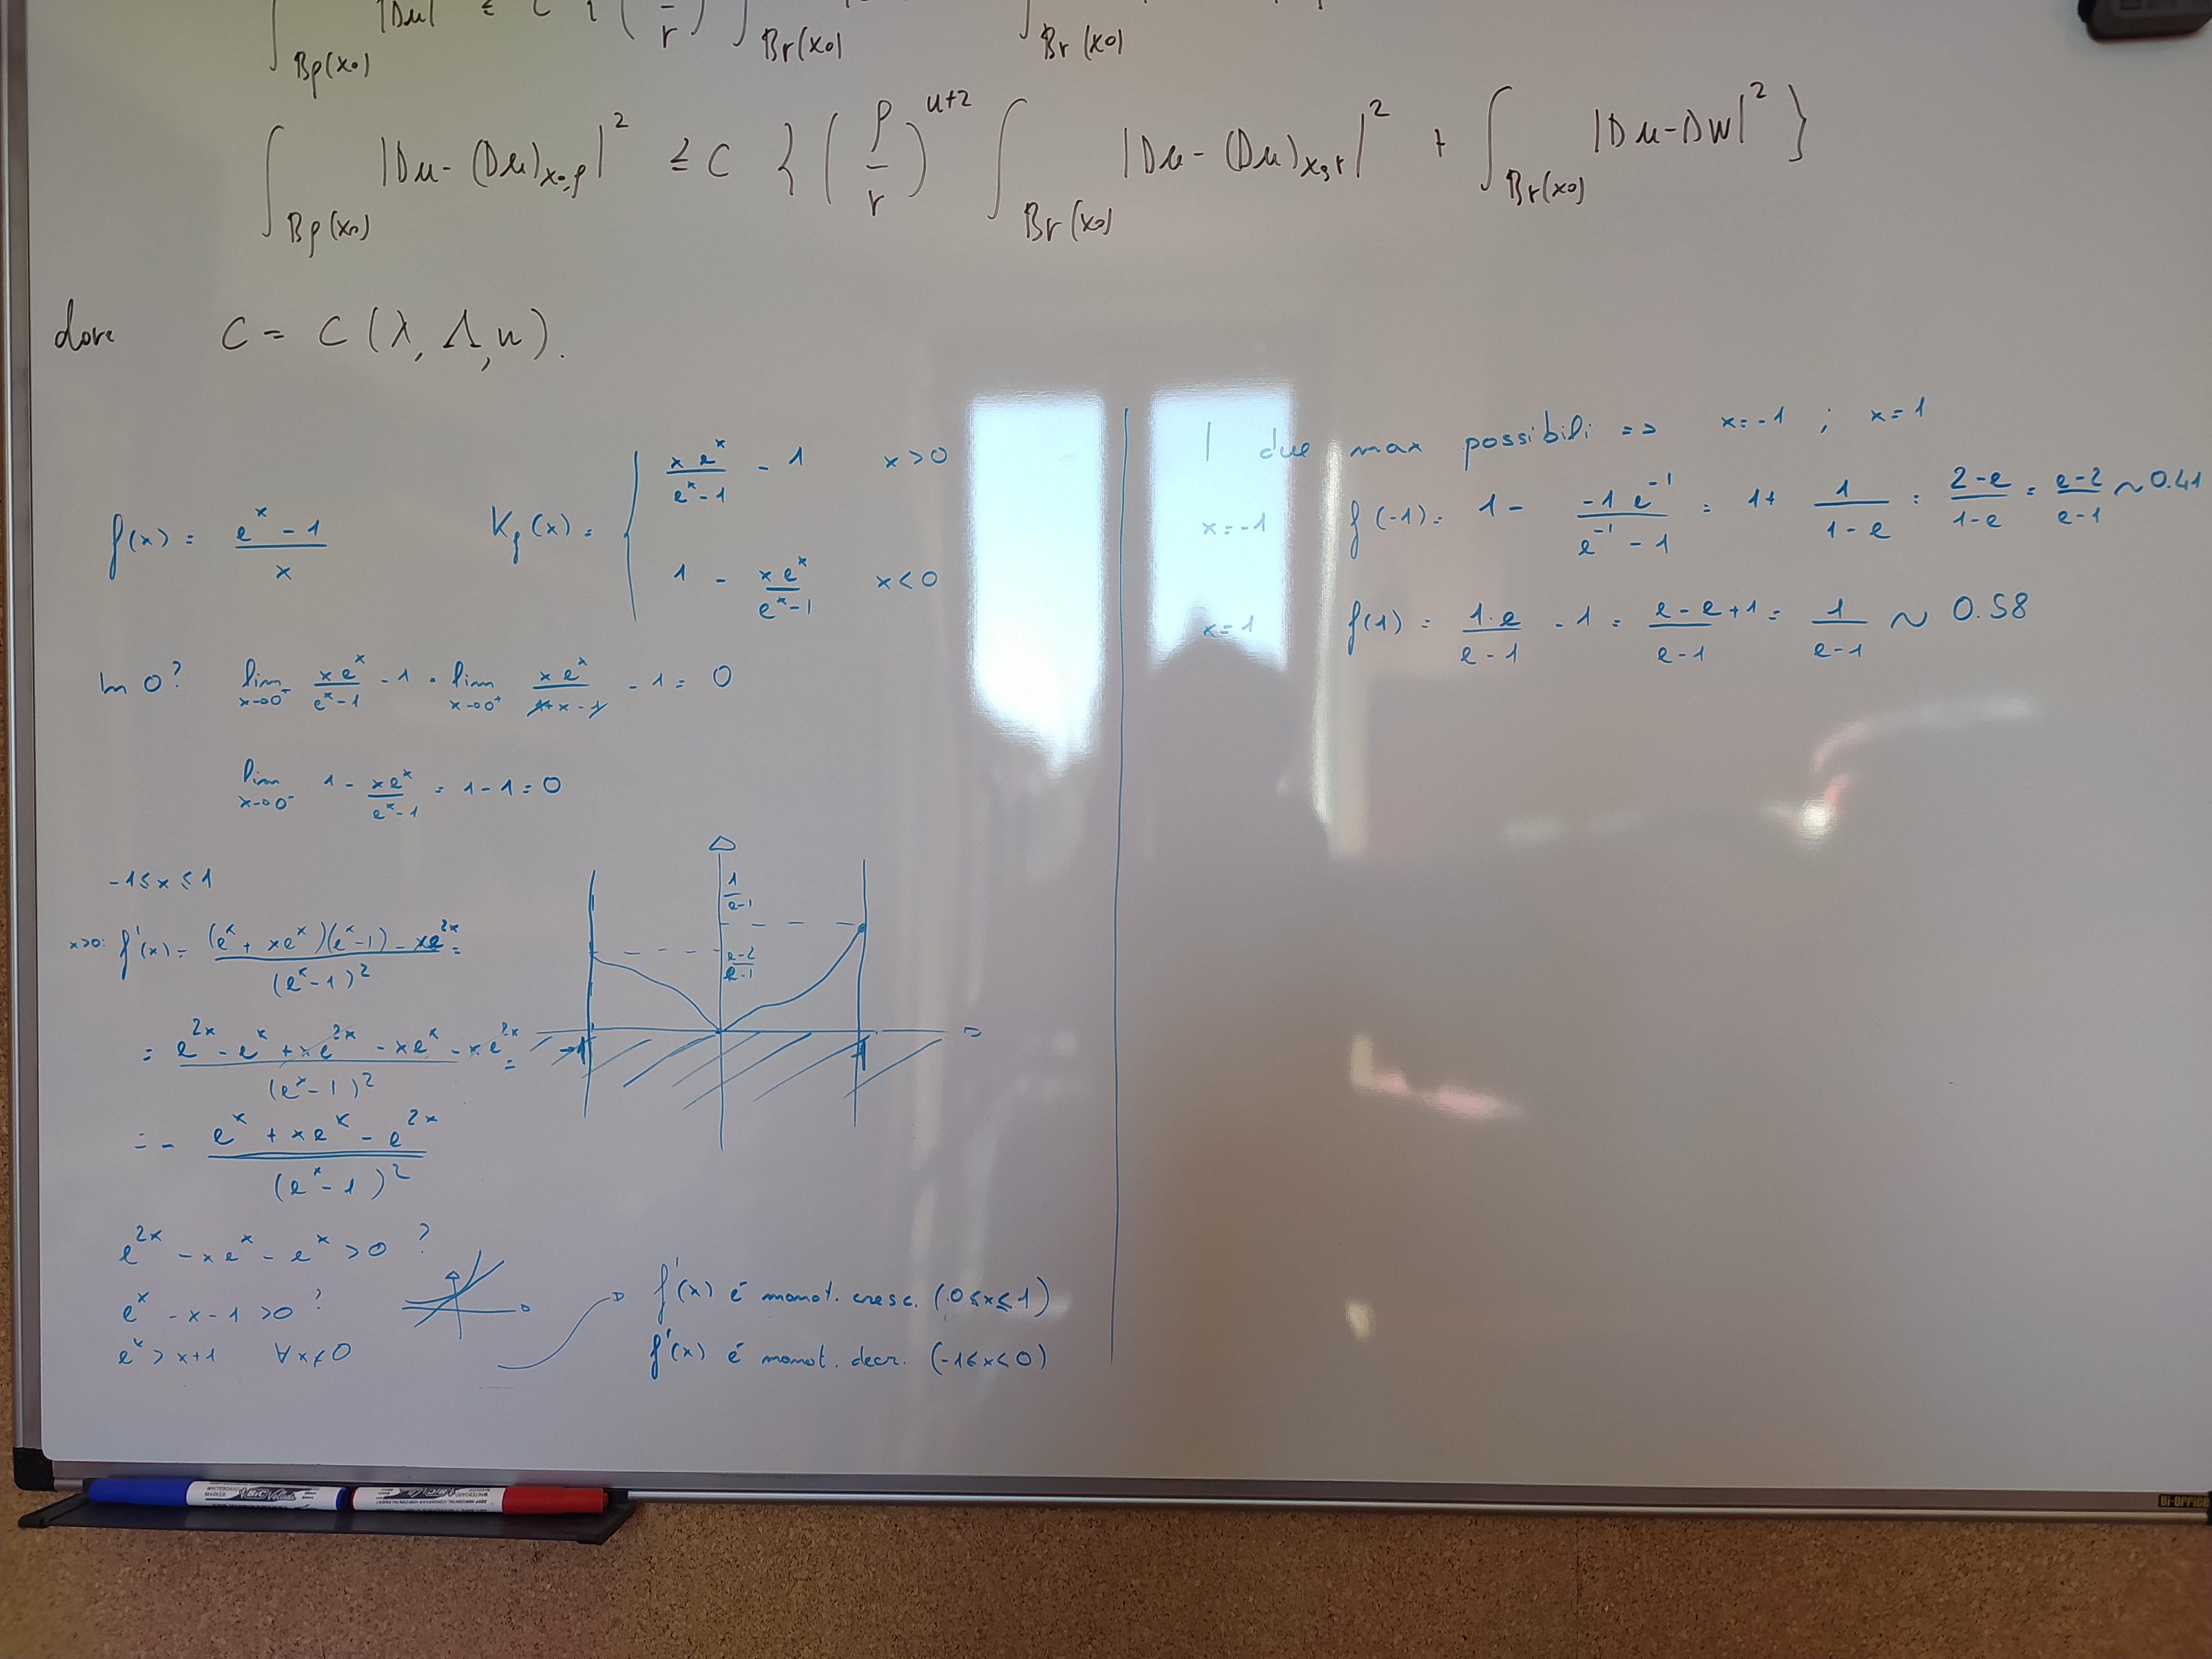 ∫_{Bρ(x₀)} |Du| ≤ C { ( – / r ) ∫_{Br(x₀)} ∫_{Br(x₀)}
∫_{Bρ(x₀)} |Du - (Du)_{x₀,ρ}|² ≤ C { (ρ/r)^{n+2} ∫_{Br(x₀)} |Du - (Du)_{x₀,r}|² + ∫_{Br(x₀)} |Du - Dw|² }
dove C = C(λ, Λ, n).
f(x) = (e^x - 1)/x
K_f(x) = { xe^x/(e^x-1) - 1 x>0
1 - xe^x/(e^x-1) x<0
In 0? lim_{x→0⁺} xe^x/(e^x-1) - 1 = lim_{x→0⁺} xe^x/(1+x-1) - 1 = 0
lim_{x→0⁻} 1 - xe^x/(e^x-1) = 1-1 = 0
-1≤x≤1
x>0: f'(x) = ((e^x + xe^x)(e^x-1) - xe^{2x})/(e^x-1)² =
= (e^{2x} - e^x + xe^{2x} - xe^x - xe^{2x})/(e^x-1)² =
= - (e^x + xe^x - e^{2x})/(e^x-1)²
e^{2x} - xe^x - e^x >0 ?
e^x - x - 1 >0 ?
e^x > x+1 ∀x≠0
1/(e-1)
(e-2)/(e-1)
-1
1
f'(x) é monot. cresc. (0≤x≤1)
f'(x) é monot. decr. (-1≤x<0)
I due max possibili => x=-1 ; x=1
x=-1 f(-1) = 1 - (-1 e^{-1})/(e^{-1} - 1) = 1 + 1/(1-e) = (2-e)/(1-e) = (e-2)/(e-1) ~ 0.41
x=1 f(1) = (1·e)/(e-1) - 1 = (e-e+1)/(e-1) = 1/(e-1) ~ 0.58
WHITEBOARD MARKER BIC Velleda
Bi-OFFICE